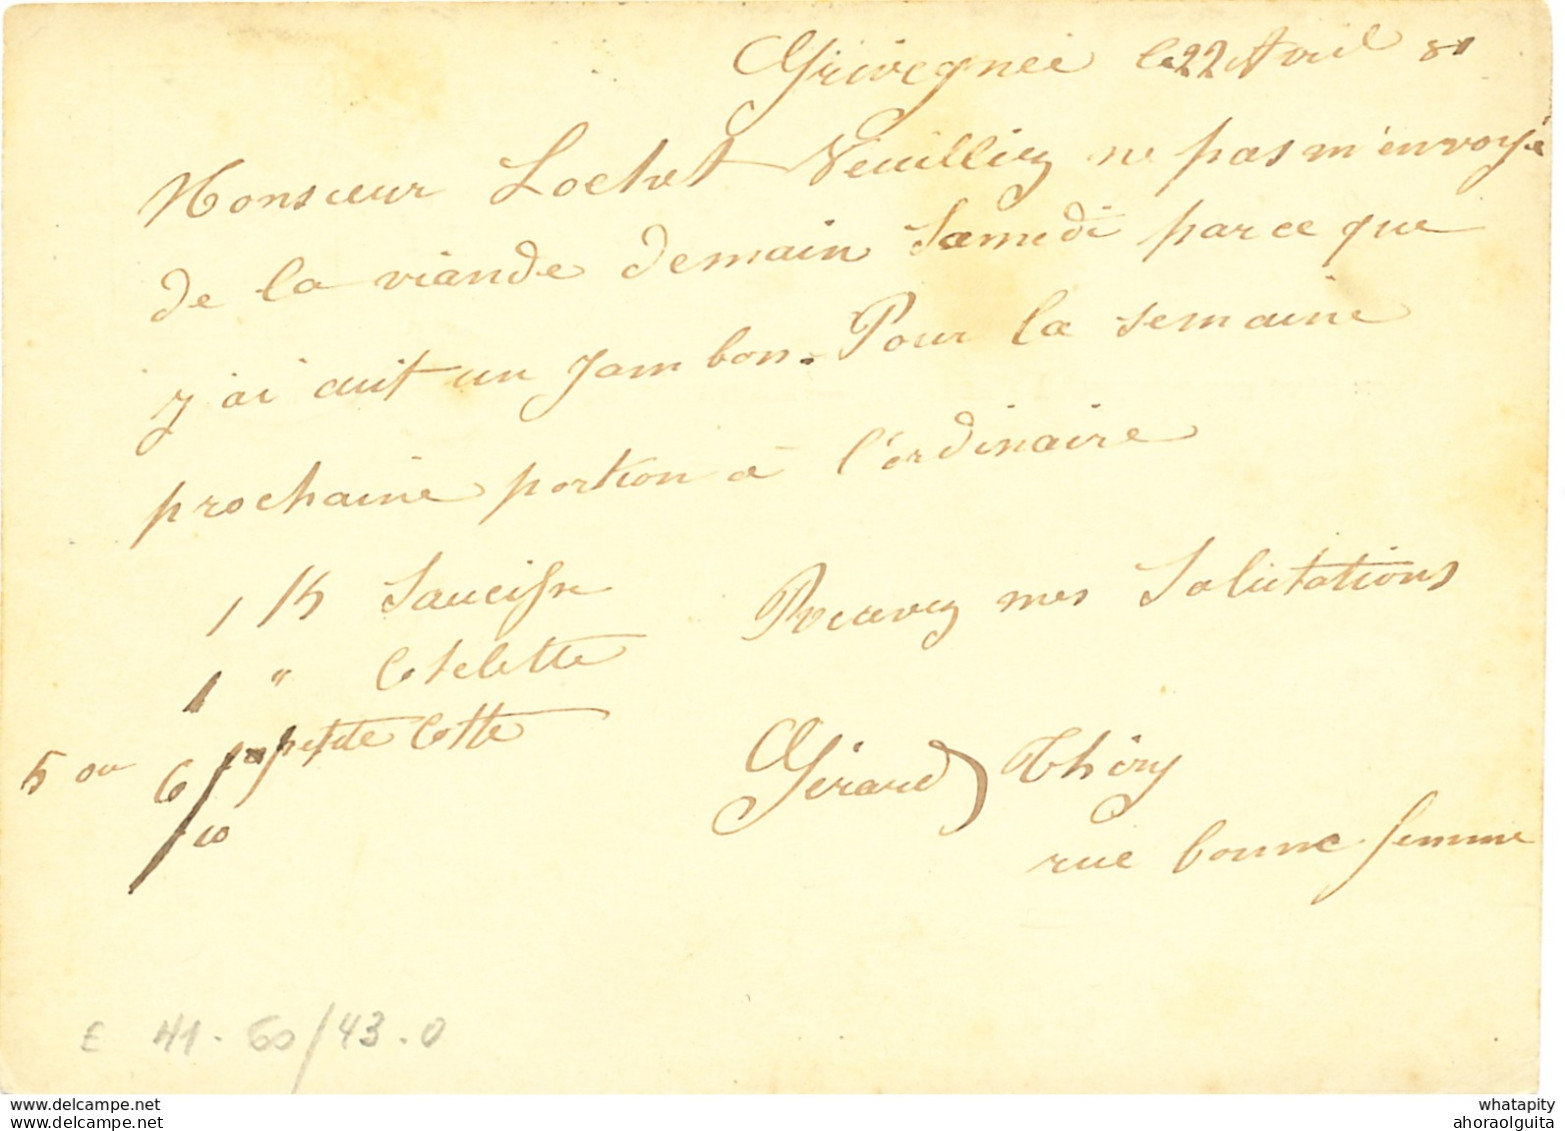 Grivegnée le 22 Avril 81
Monsieur Lochet Veuilliez ne pas m'envoyé
de la viande demain Samedi parce que
j'ai cuit un Jambon. Pour la semaine
prochaine portion à l'ordinaire
1 K Saucisse
Recevez mes Salutations
1 " Cotelette
5 ou 6 petite Cotte
10
Gérard Thiry
rue bonne femme
E 41-60/43.0
whatapity
ahoraolguita